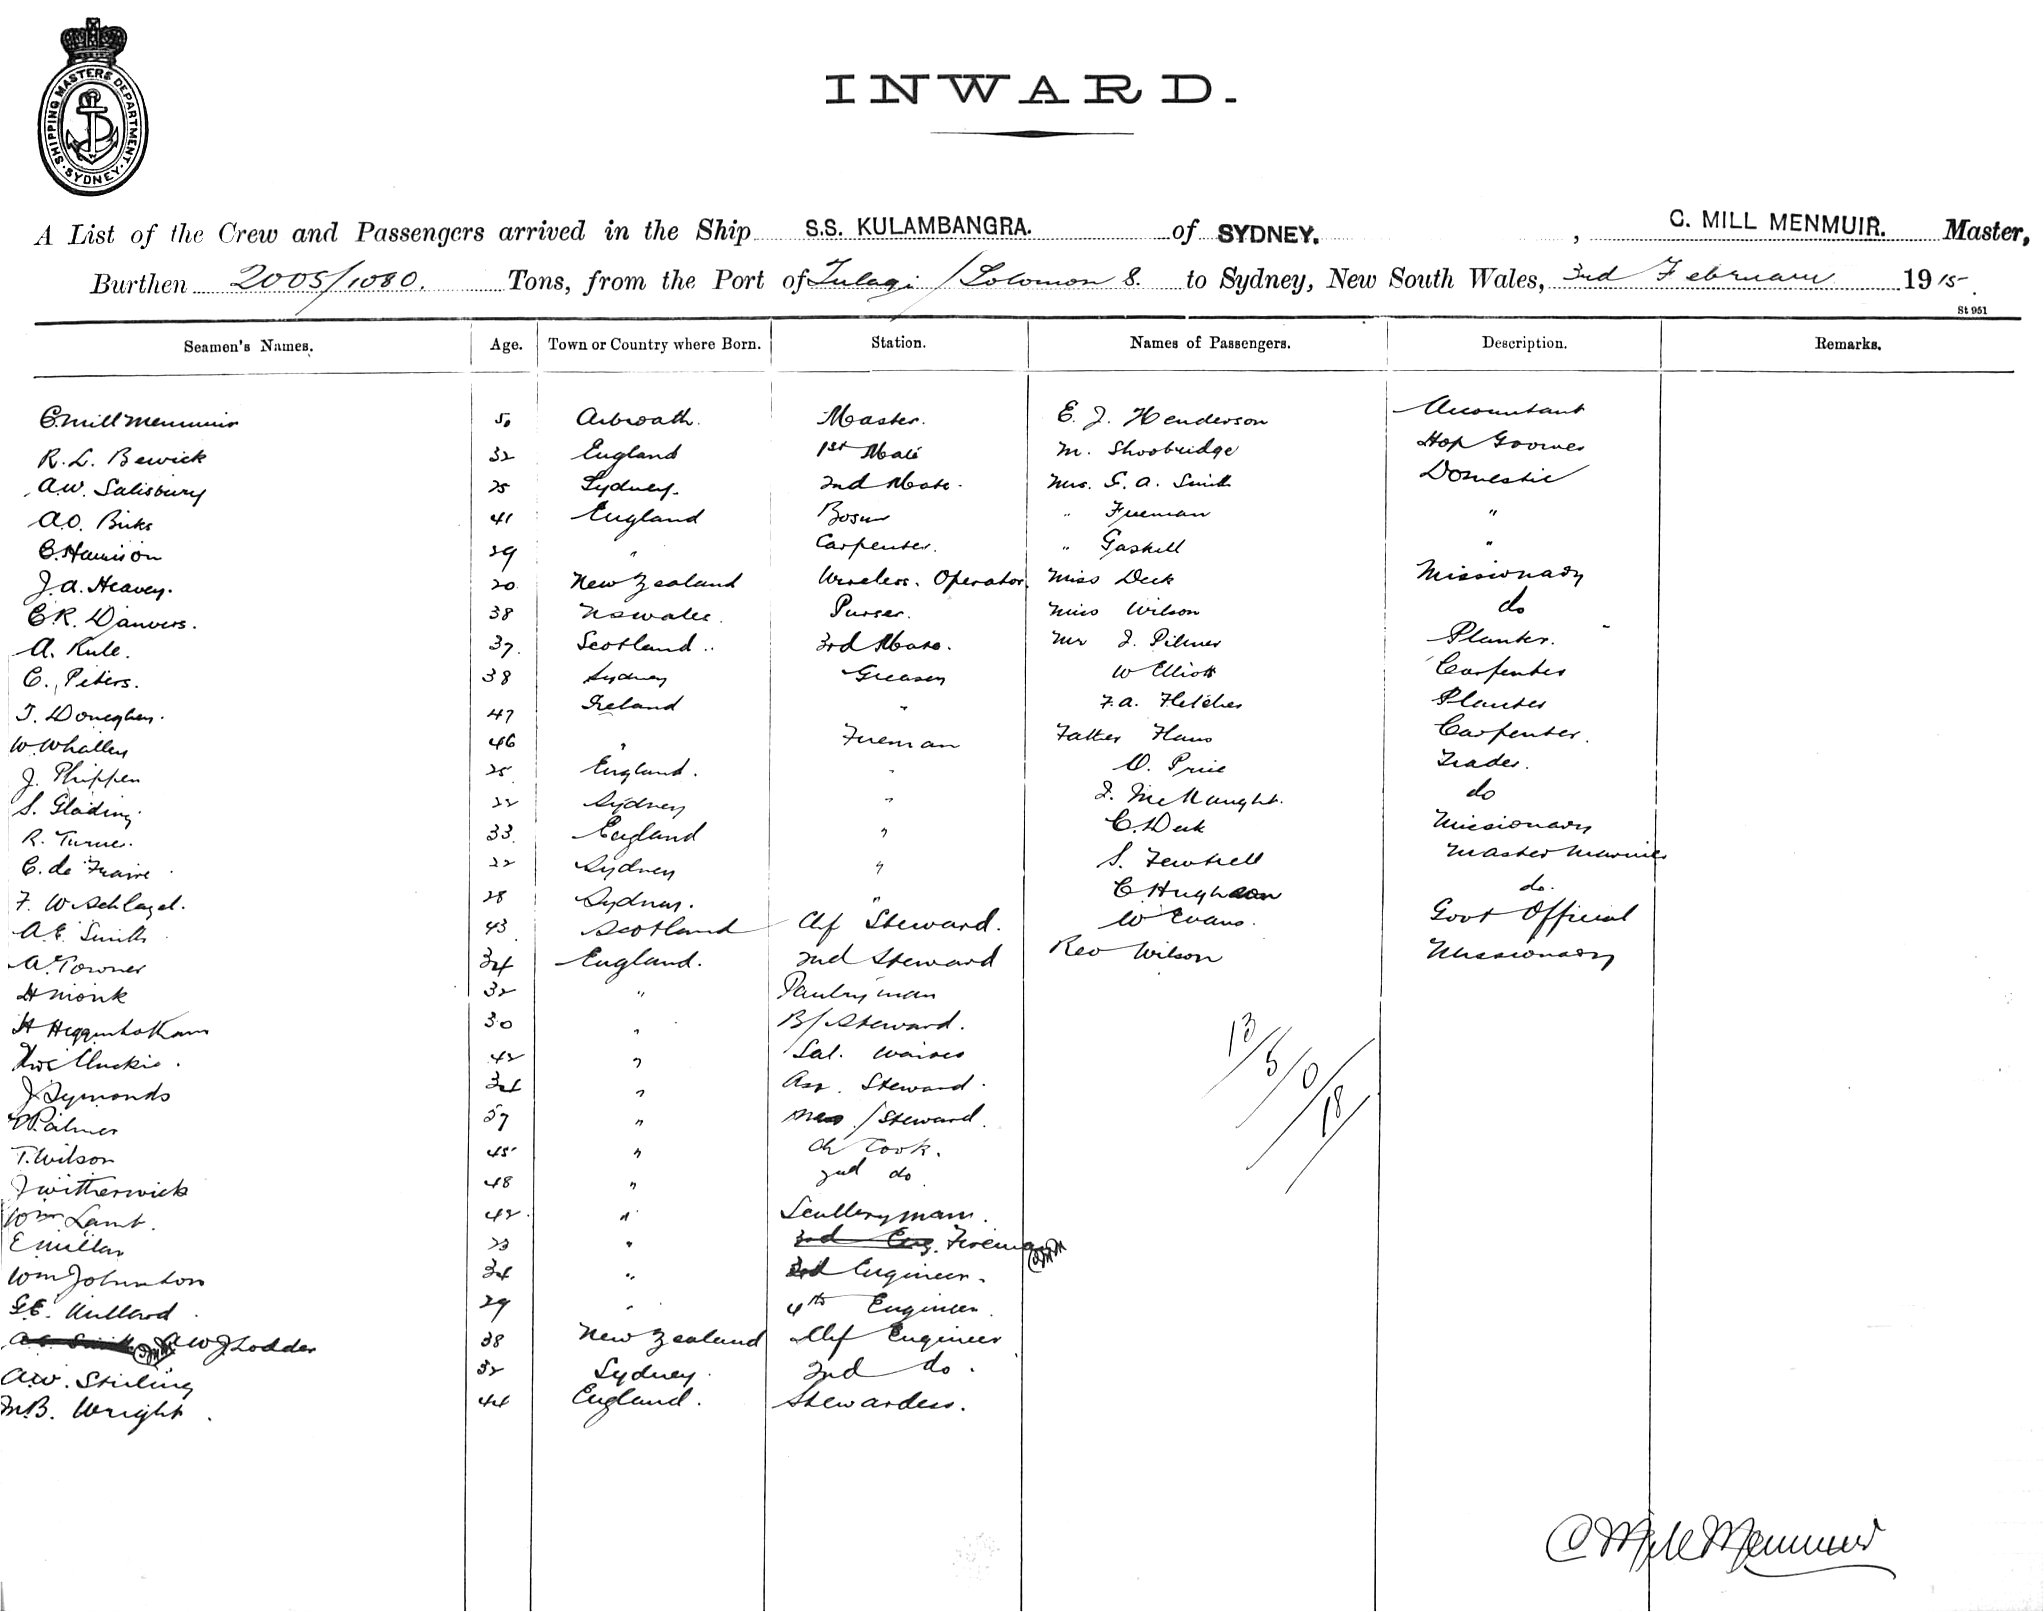 SHIPPING MASTERS DEPARTMENT. SYDNEY.
INWARD.
A List of the Crew and Passengers arrived in the Ship S.S. KULAMBANGRA. of SYDNEY. , C. MILL MENMUIR. Master,
Burthen 2005/1080. Tons, from the Port of Tulagi / Solomon S. to Sydney, New South Wales, 3rd February 1915.
St 951
Seamen's Names. Age. Town or Country where Born. Station. Names of Passengers. Description. Remarks.
C. Mill Menmuir 50 Arbroath. Master. E. J. Henderson Accountant
R. L. Bewick 32 England 1st Mate M. Shoobridge Hop Grower
A.W. Salisbury 25 Sydney. 2nd Mate. Mrs. S. A. Smith Domestic
A.O. Birks 41 England Bosun " Freeman "
C. Harrison 29 " Carpenter. " Gaskell "
J. A. Heavey. 20 New Zealand Wireless. Operator. Miss Deck Missionary
C R. Danvers. 38 NSWales. Purser. Miss Wilson do
A. Rule. 37. Scotland.. 3rd Mate. Mr J. Pilmer Planter.
C. Peters. 38 Sydney Greaser W Elliott Carpenter
T. Doneghey. 47 Ireland " F. A. Fletcher Planter
W. Whalley 46 " Fireman Father Hans Carpenter.
J. Phippen 25 England. " O. Price Trader.
S. Glading. 22 Sydney " J. McNaught. do
R. Turner. 33. England " C. Deck Missionary
C. de Fraine 22 Sydney " S. Fewtrell Master Mariner
F. W Schlazel. 28 Sydney. " C Hughson do.
A. E. Smith 43 Scotland Chf Steward. W Evans. Govt Official
A. Towner 34 England. 2nd Steward Rev Wilson Missionary
H Monk 32 " Pantryman
H Higginbotham 30 " B/ Steward.
McCluckie. 42 " Sal. Waiter
J Symonds 34 " Ass. Steward.
Palmer 57 " Mess / Steward.
T. Wilson 45 " Ch Cook.
J Witherwick 48 " 2nd do
Wm Lamb. 42. " Scullery man.
E Millar 23 " 3rd Eng. Fireman CMM
Wm Johnston 34 " 3rd Engineer.
G.E. Millard 29 " 4th Engineer.
A. E. Smith CMM A W J Lodder 38 New Zealand Chf Engineer
A.W. Stirling 32 Sydney. 2nd do.
M.B. Wright. 44 England. Stewardess.
13/5/0/18/
C Mill Menmuir